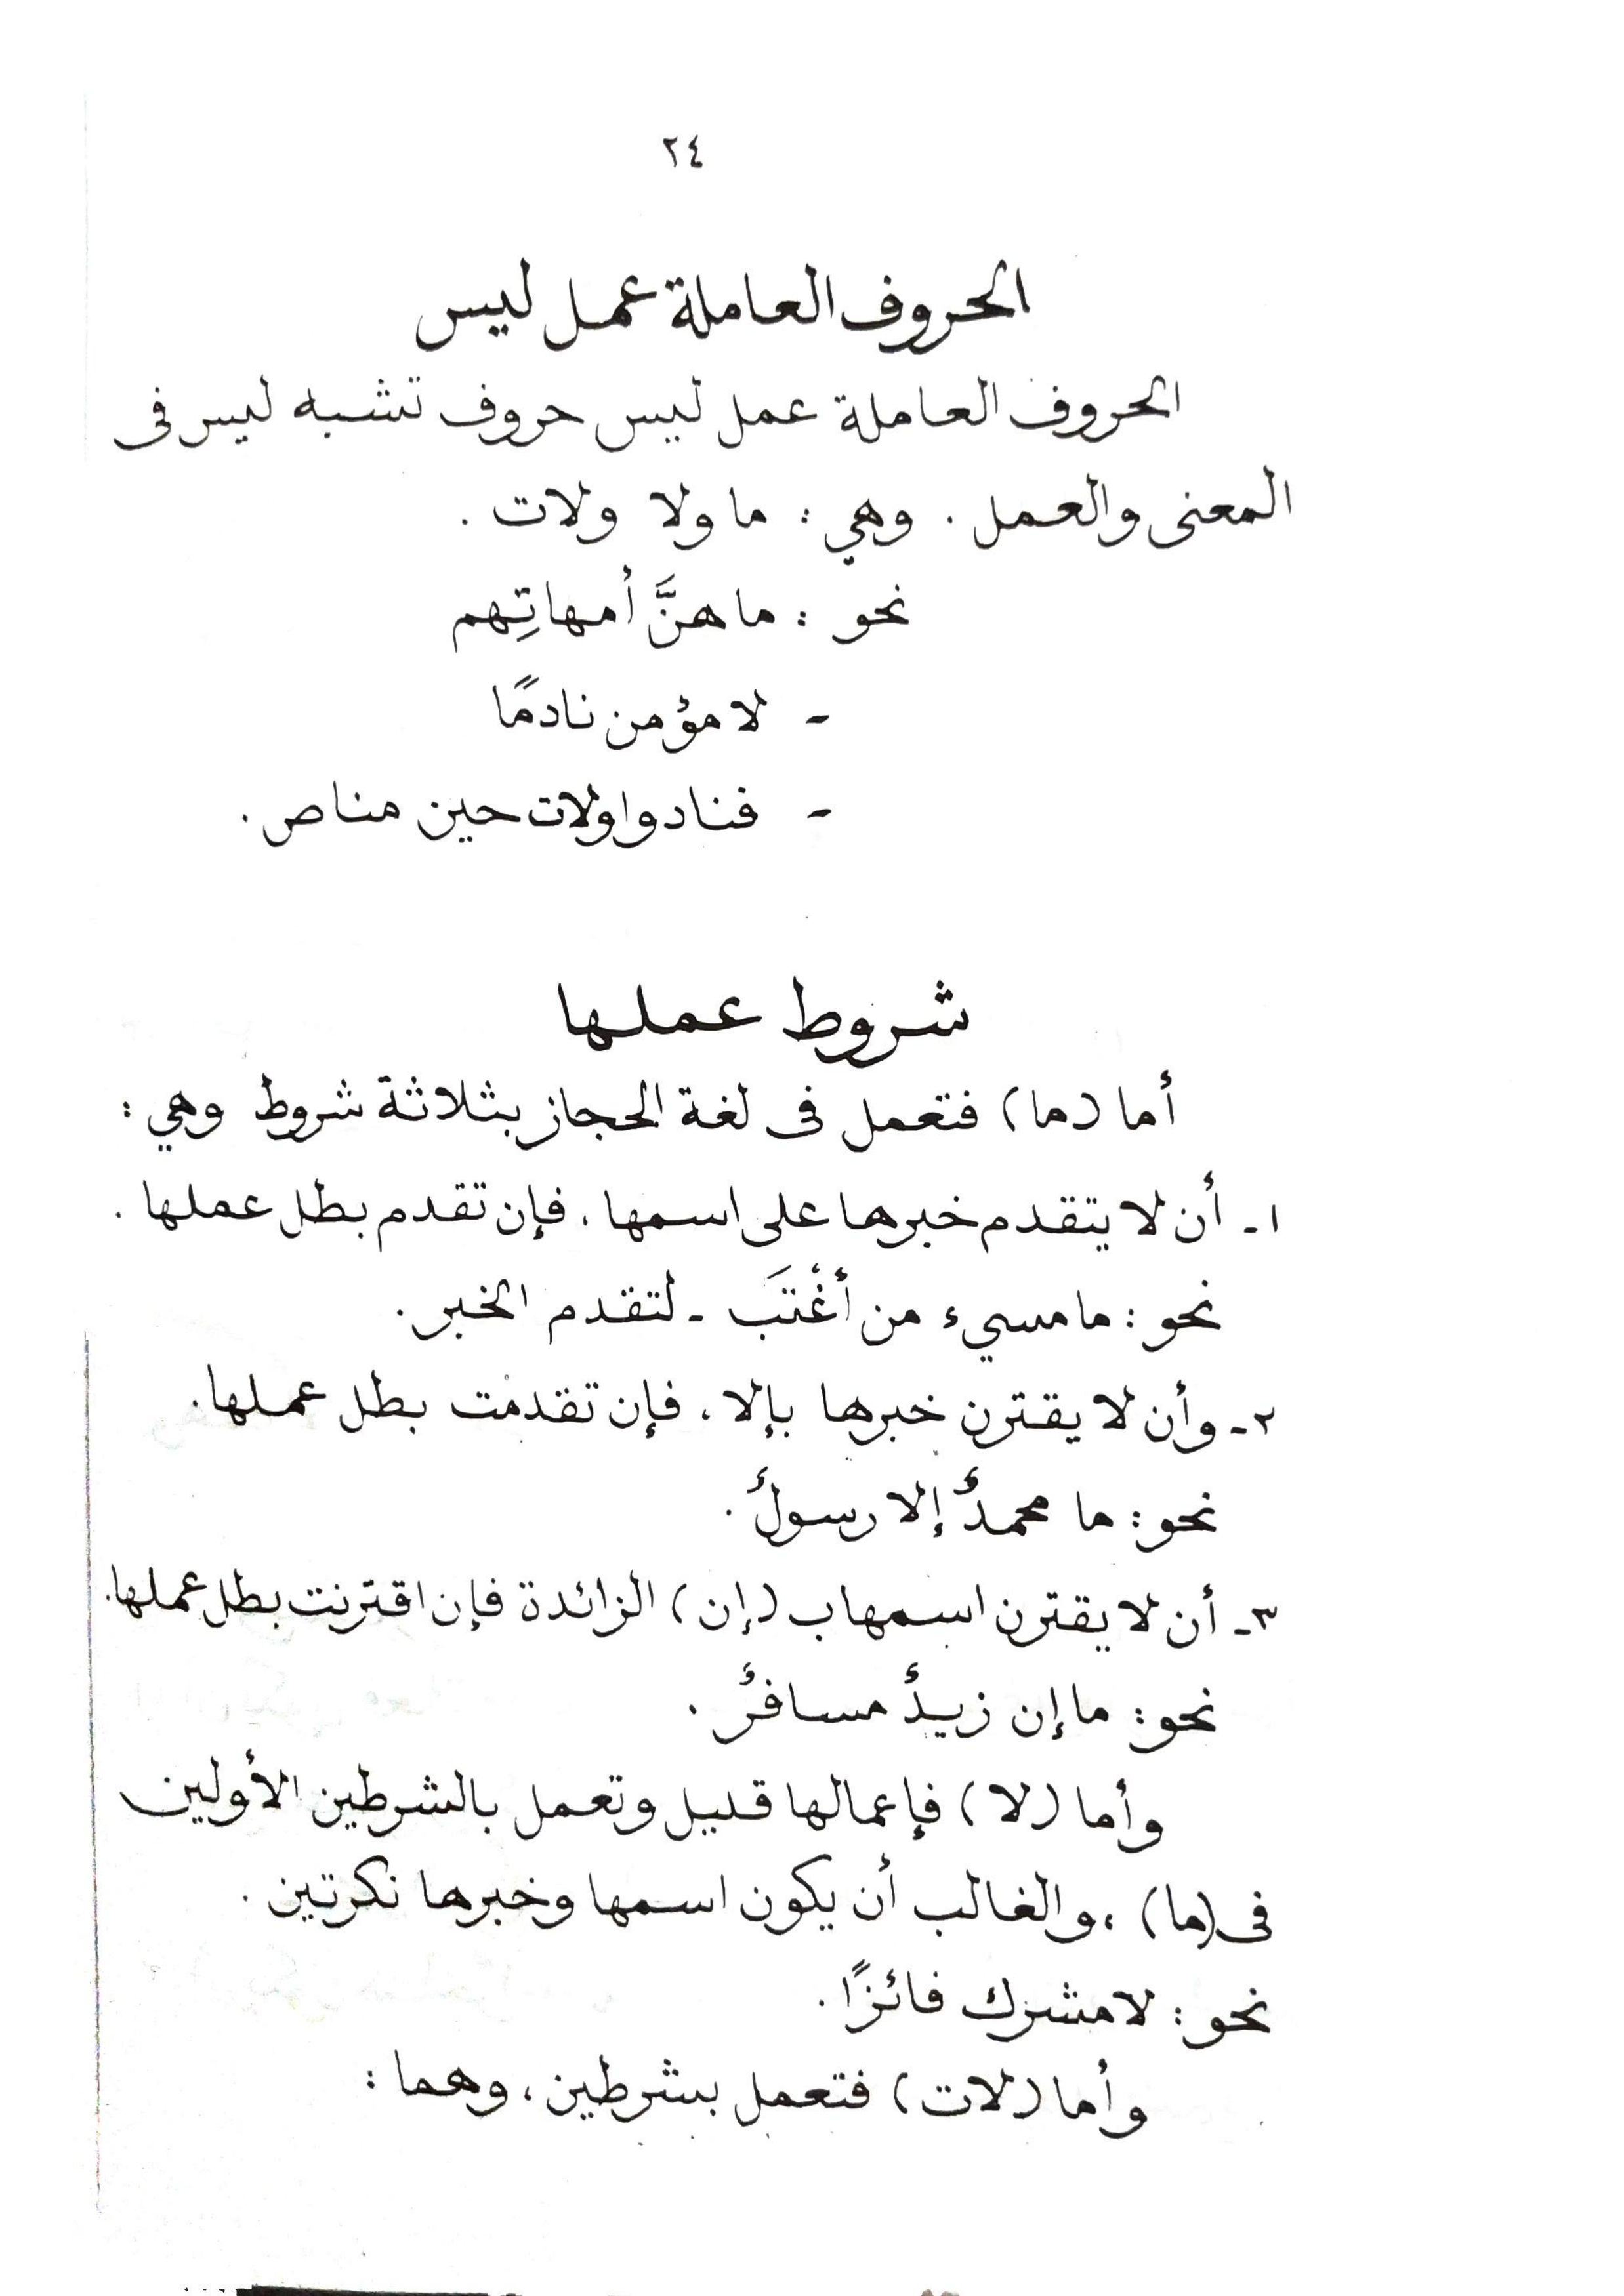 ٢٤
الحروف العاملة عمل ليس
الحروف العاملة عمل ليس حروف تشبه ليس فى
المعنى والعمل . وهي : ما ولا ولات .
نحو : ما هنَّ أمهاتِهم
- لا مؤمن نادمًا
- فنادوا ولات حين مناص .
شروط عملها
أما (ما) فتعمل فى لغة الحجاز بثلاثة شروط وهي :
١- أن لا يتقدم خبرها على اسمها ، فإن تقدم بطل عملها .
نحو : ما مسيء من أعْتَبَ - لتقدم الخبر .
٢- وأن لا يقترن خبرها بإلا ، فإن تقدمت بطل عملها .
نحو : ما محمدٌ إلا رسولٌ .
٣- أن لا يقترن اسمها ب (إن) الزائدة فإن اقترنت بطل عملها .
نحو : ما إن زيدٌ مسافرٌ .
وأما (لا) فإعمالها قليل وتعمل بالشرطين الأولين
فى (ما) ، والغالب أن يكون اسمها وخبرها نكرتين .
نحو : لا مشرك فائزًا .
وأما (لات) فتعمل بشرطين ، وهما :